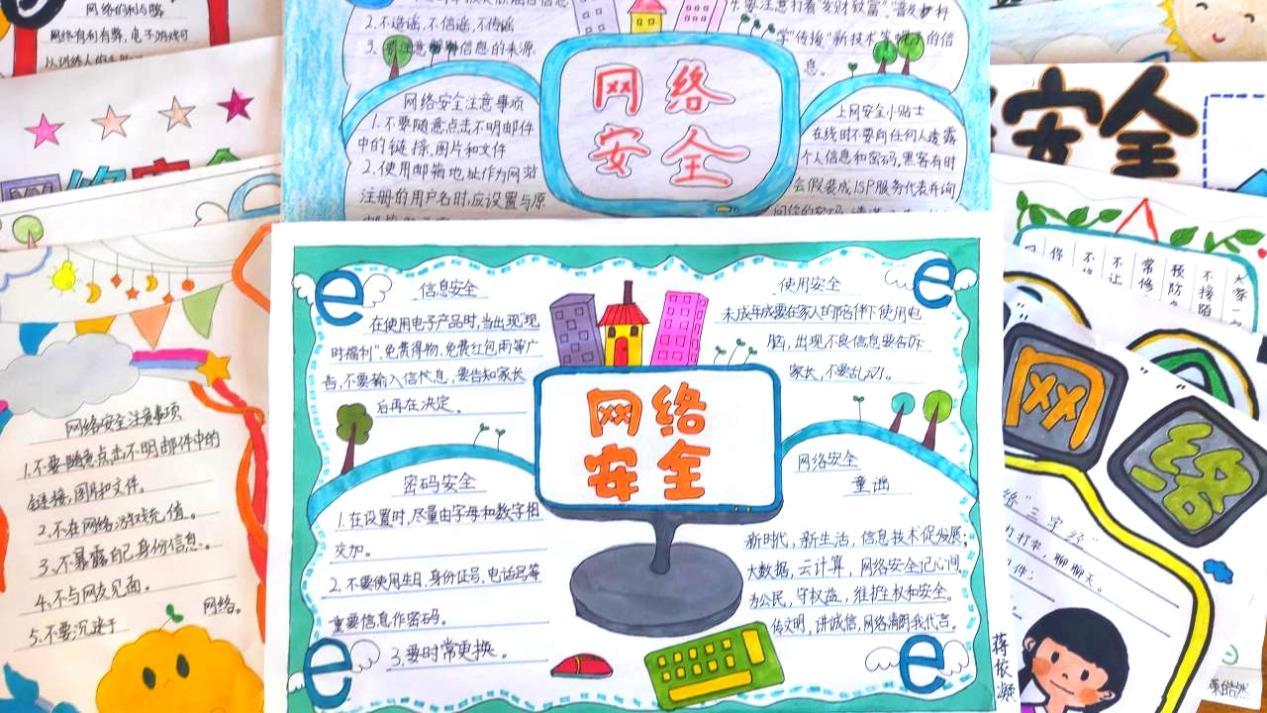 网络的利与弊
网络有利有弊，电子游戏可
2.不造谣，不信谣，不传谣
信息的来源.
网络安全注意事项
1.不要随意点击不明邮件
中的链接、图片和文件
2.使用邮箱地址作为网站
注册的用户名时，应设置与原
网络
安全
息。
上网安全小贴士
在线时不要向任何人透露
个人信息和密码，黑客有时
会假装成ISP服务代表并询
安全
信息安全
在使用电子产品时,当出现"现
时福利"、免费得物、免费红包雨等广
告,不要输入信息,要告知家长
后再在决定.
使用安全
未成年成要在家人的陪伴下使用电
脑，出现不良信息要告诉
家长，不要乱
网络
安全
密码安全
1.在设置时,尽量由字母和数字相
交加.
2.不要使用生日、身份证号、电话号等
重要信息作密码.
3.要时常更换.
网络安全
童谣
新时代，新生活，信息技术促发展；
大数据，云计算，网络安全记心间。
为公民，守权益，维护主权和安全。
传文明，讲诚信，网络清朗我代言。
e
e
e
e
网络安全注意事项
1.不要随意点击不明邮件中的
链接，图片和文件。
2.不在网络游戏充值。
3、不暴露自己身份信息。
4、不与网友见面。
5.不要沉迷于
网络。
网
络
"三字经"
聊聊天。
蒋依凝